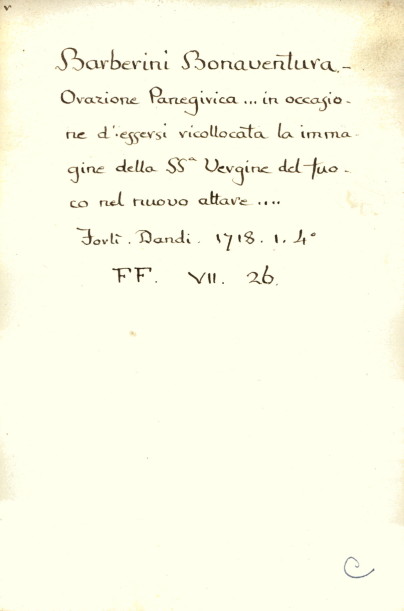 v
Barberini Bonaventura.-
Orazione Panegirica ... in occasio-
ne d'essersi ricollocata la imma-
gine della SSᵃ Vergine del fuo-
co nel nuovo altare ....
Forlì. Dandi. 1718. 1. 4°
FF. VII. 26.
C